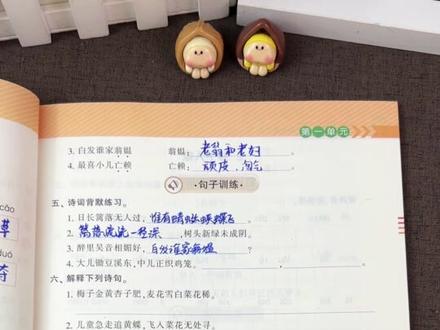 第一单元
3. 白发谁家翁媪 翁媪: 老翁和老妇。
4. 最喜小儿亡赖 亡赖: 顽皮、淘气。
·句子训练·
五、诗词背默练习。
1. 日长篱落无人过,惟有蜻蜓蛱蝶飞。
2. 篱落疏疏一径深,树头新绿未成阴。
3. 醉里吴音相媚好,白发谁家翁媪。
4. 大儿锄豆溪东,中儿正织鸡笼。
六、解释下列诗句。
1. 梅子金黄杏子肥,麦花雪白菜花稀。
2. 儿童急走追黄蝶,飞入菜花无处寻。
cǎo
草
duó